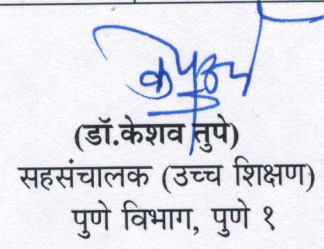 (डॉ.केशव तुपे)
सहसंचालक (उच्च शिक्षण)
पुणे विभाग, पुणे १